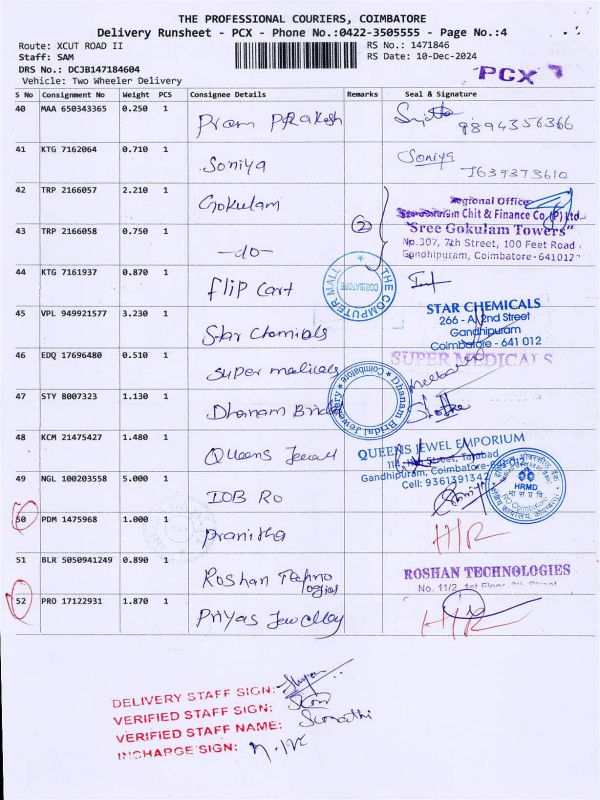 THE PROFESSIONAL COURIERS, COIMBATORE
Delivery Runsheet - PCX - Phone No.:0422-3505555 - Page No.:4
Route: XCUT ROAD II
RS No.: 1471846
Staff: SAM
RS Date: 10-Dec-2024
DRS No.: DCJB147184604
Vehicle: Two Wheeler Delivery
PCX
S No Consignment No Weight PCS Consignee Details Remarks Seal & Signature
40 MAA 650343365 0.250 1 Prem Prakash 9894356366
41 KTG 7162064 0.710 1 Soniya Soniya 7639373610
42 TRP 2166057 2.210 1 Gokulam
Regional Office
Chit & Finance Co.(P) Ltd.
"Sree Gokulam Towers"
No.307, 7th Street, 100 Feet Road
Gandhipuram, Coimbatore-641012
2
43 TRP 2166058 0.750 1 -do-
44 KTG 7161937 0.870 1 Flip Cart
THE COMPUTER MALL
COIMBATORE
45 VPL 949921577 3.230 1 Star Chemicals
STAR CHEMICALS
266 - A, 2nd Street
Gandhipuram
Coimbatore - 641 012
46 EDQ 17696480 0.510 1 Super medicals
SUPER MEDICALS
47 STY 8007323 1.130 1 Dhanam Bridal
Dhanam Bridal Jewellery
Coimbatore
48 KCM 21475427 1.480 1 Queens Jewell
QUEENS JEWEL EMPORIUM
Gandhipuram, Coimbatore-
Cell: 9361391342
49 NGL 100203558 5.000 1 IOB RO
HRMD
RO Coimbatore
50 PDM 1475968 1.000 1 Pranitha H/R
51 BLR 5050941249 0.890 1 Roshan Technologies
ROSHAN TECHNOLOGIES
No. 11/2, 1st Floor,
52 PRO 17122931 1.870 1 Priyas Jewellery H/R
DELIVERY STAFF SIGN:
VERIFIED STAFF SIGN:
VERIFIED STAFF NAME: Sumathi
INCHARGE SIGN: